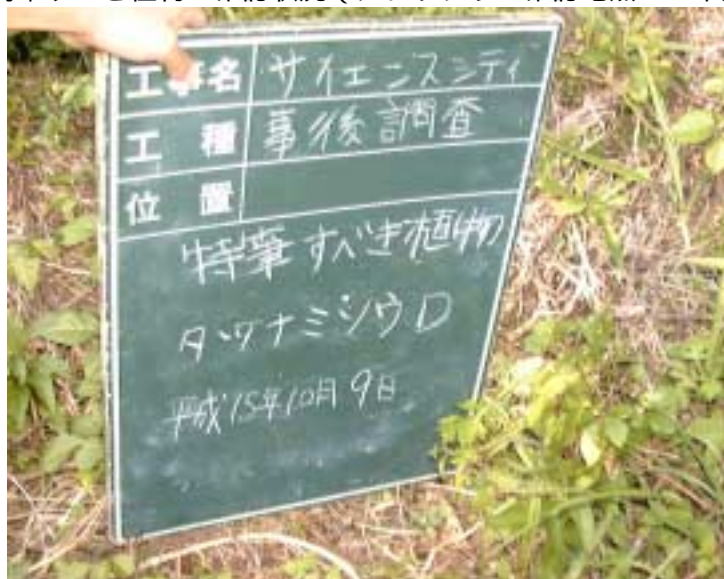 工事名 サイエンスシティ
工種 事後調査
位置
特筆すべき植物
タツナミソウ D
平成15年10月9日